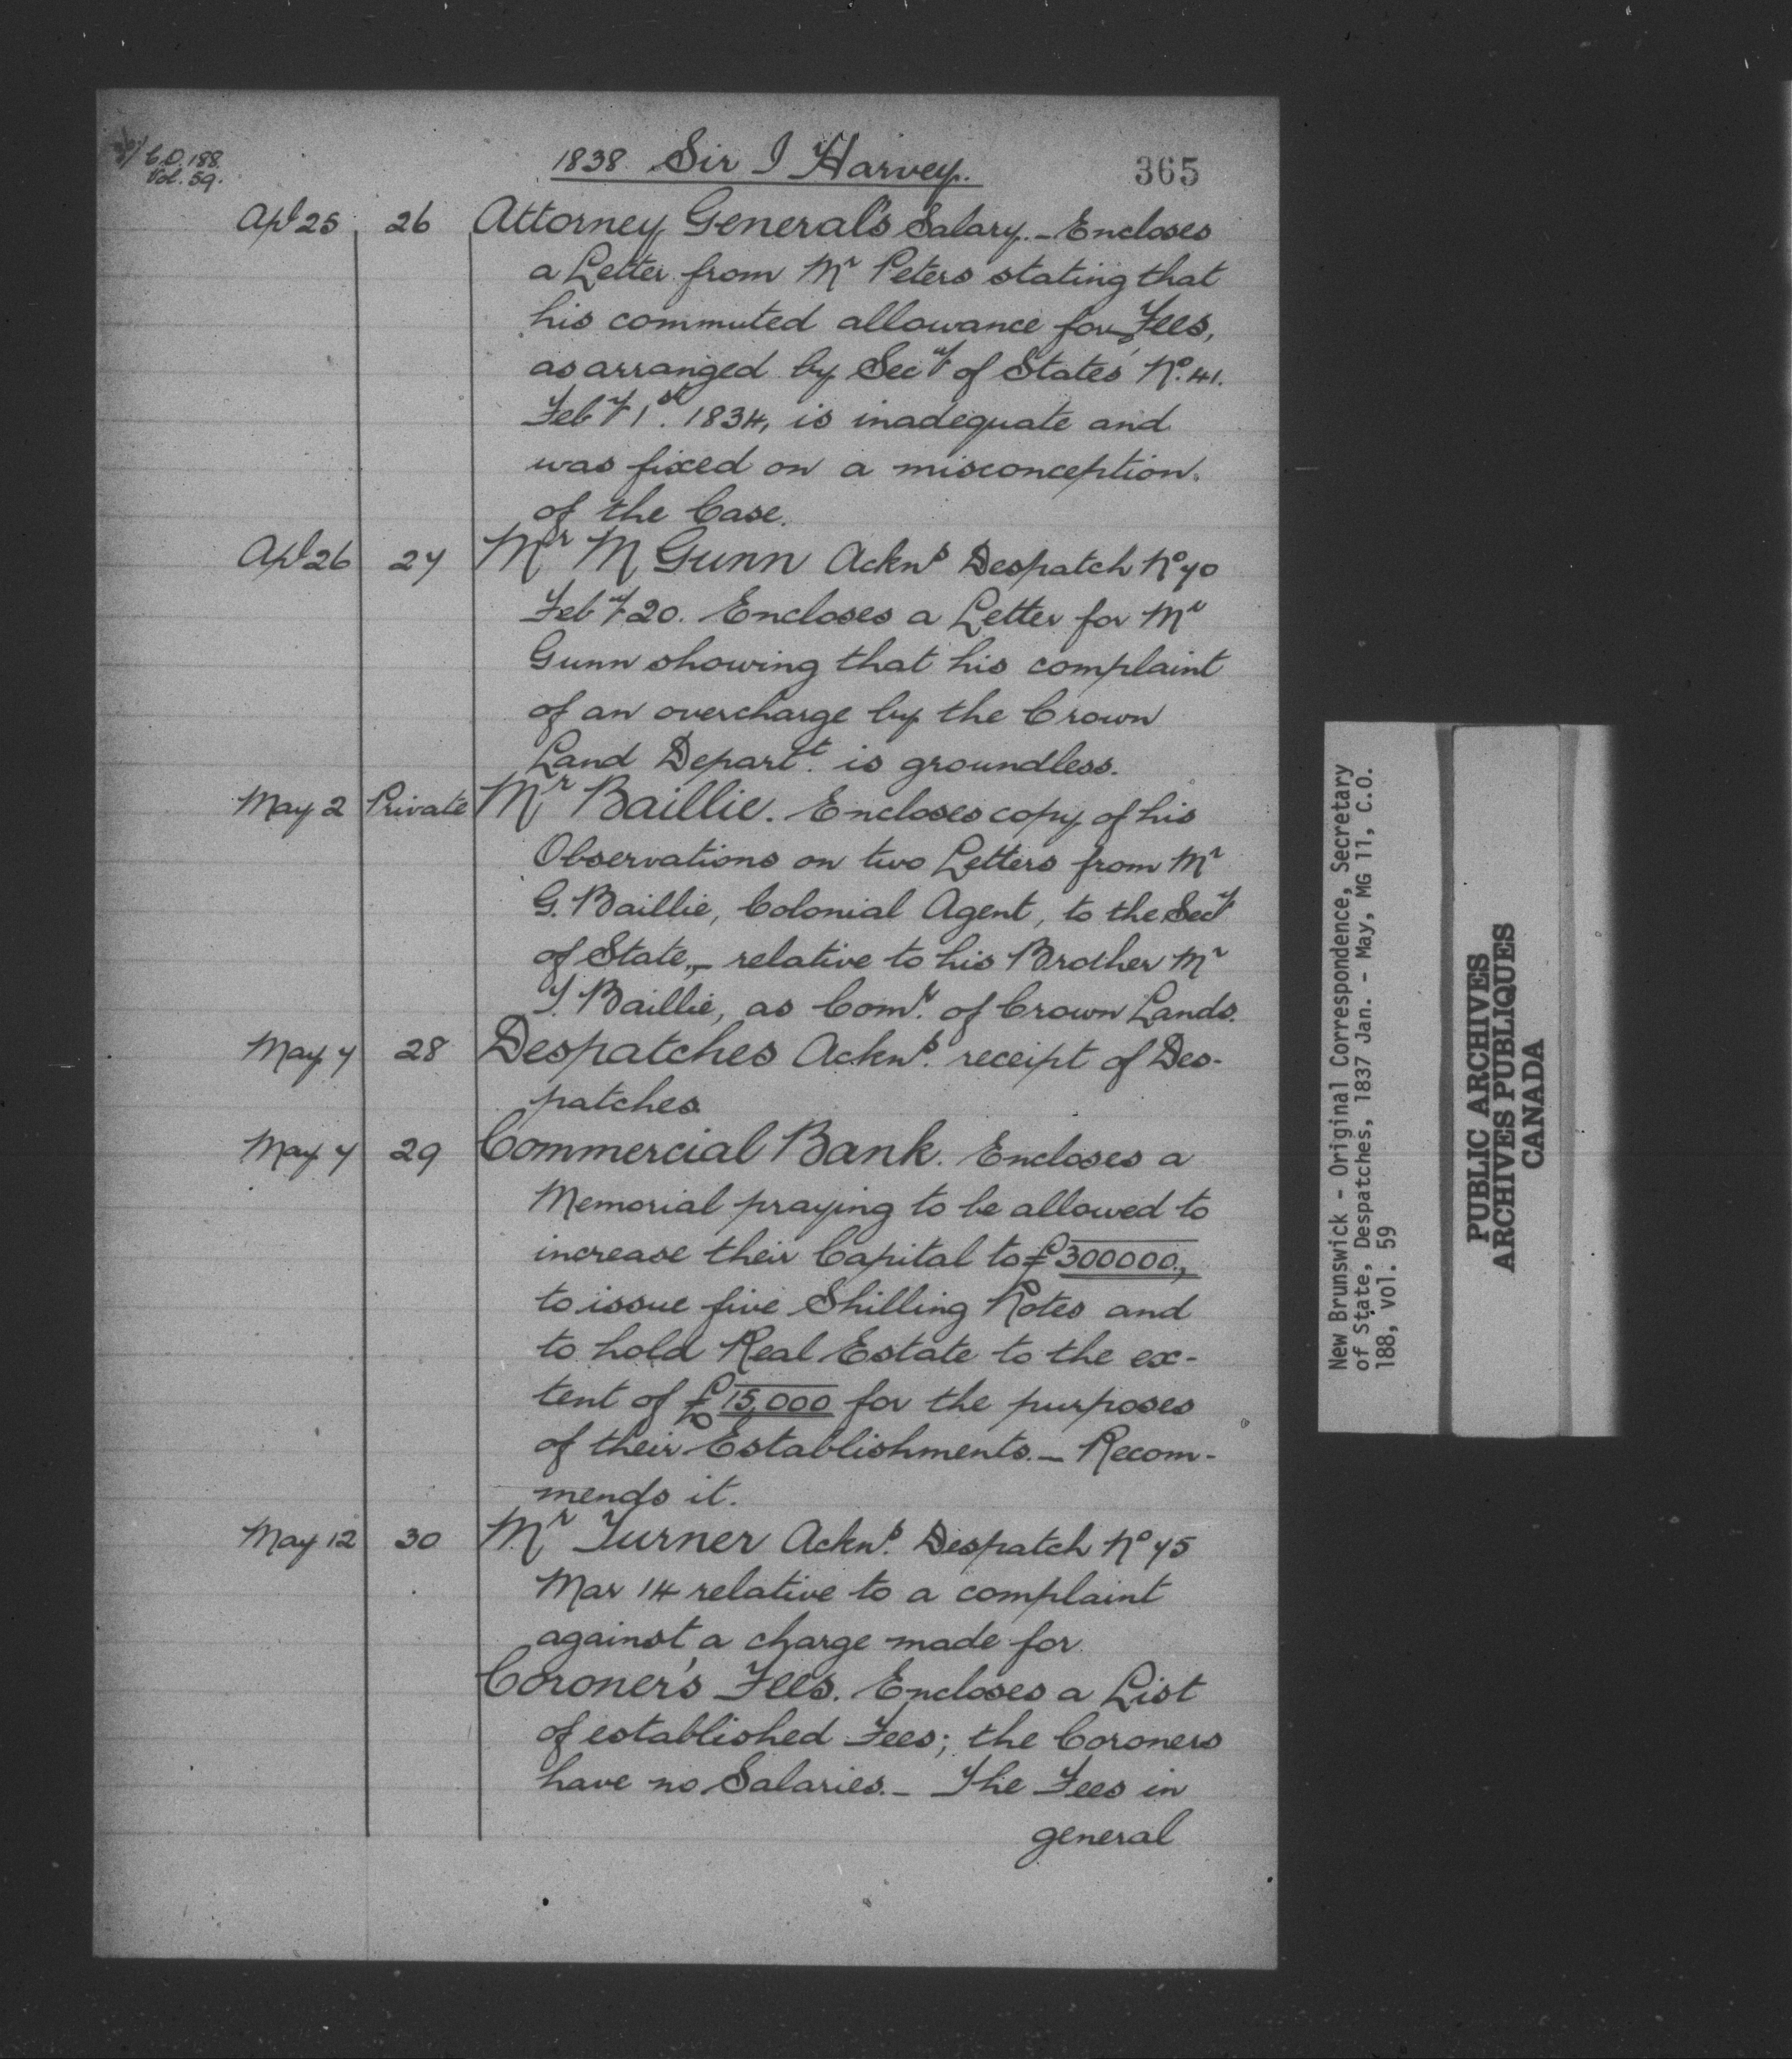 C.O. 188.
Vol. 59.
1838. Sir J Harvey.
365
Apl 25 26 Attorney General's Salary. – Encloses
a Letter from Mr Peters stating that
his commuted allowance for Fees,
as arranged by Secy of States' No. 41.
Feby 1st. 1834, is inadequate and
was fixed on a misconception
of the Case.
Apl 26 27 Mr M Gunn Ackns Despatch No 70
Feby 20. Encloses a Letter for Mr
Gunn showing that his complaint
of an overcharge by the Crown
Land Depart.t is groundless.
May 2 Private Mr Baillie. Encloses copy of his
Observations on two Letters from Mr
G. Baillie, Colonial Agent, to the Secy
of State, – relative to his Brother Mr
T. Baillie, as Comr. of Crown Lands.
May 7 28 Despatches Ackns. receipt of Des-
patches.
May 7 29 Commercial Bank. Encloses a
Memorial praying to be allowed to
increase their Capital to £300000.,
to issue five Shilling Notes and
to hold Real Estate to the ex-
tent of £15,000 for the purposes
of their Establishments. – Recom-
mends it.
May 12 30 Mr Turner Ackns. Despatch No 75
Mar 14 relative to a complaint
against a charge made for
Coroner's Fees. Encloses a List
of established Fees; the Coroners
have no Salaries. – The Fees in
general
New Brunswick - Original Correspondence, Secretary
of State, Despatches, 1837 Jan. - May, MG 11, C.O.
188, vol. 59
PUBLIC ARCHIVES
ARCHIVES PUBLIQUES
CANADA